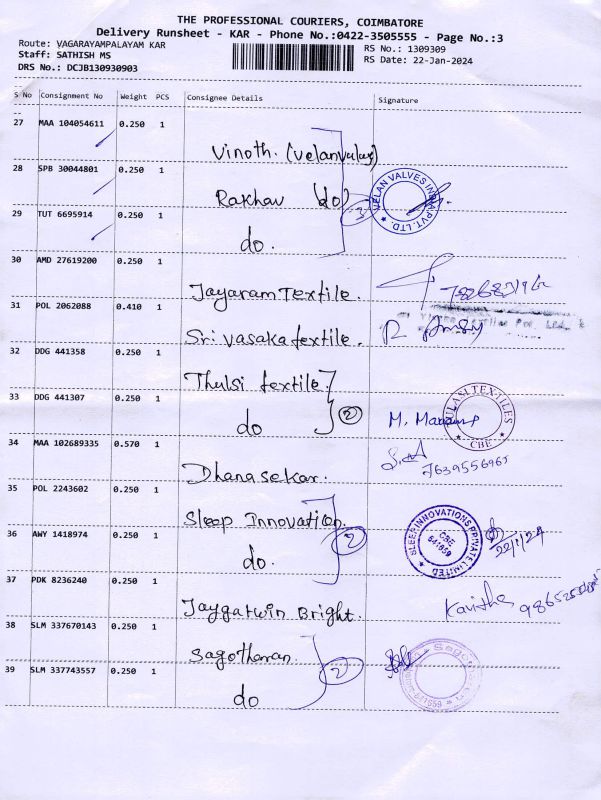 THE PROFESSIONAL COURIERS, COIMBATORE
Delivery Runsheet - KAR - Phone No.:0422-3505555 - Page No.:3
Route: VAGARAYAMPALAYAM KAR
RS No.: 1309309
Staff: SATHISH MS
RS Date: 22-Jan-2024
DRS No.: DCJB130930903
S No Consignment No Weight PCS Consignee Details Signature
--
27 MAA 104054611 0.250 1
Vinoth. (Velanvalves)
28 SPB 30044801 0.250 1
Rakhav (do)
3
VELAN VALVES INDIA PVT. LTD.
29 TUT 6695914 0.250 1
do.
30 AMD 27619200 0.250 1
Jayaram Textile.
31 POL 2062088 0.410 1
Sri Vasaka textile.
32 DDG 441358 0.250 1
Thulsi textile.
33 DDG 441307 0.250 1
do
2
M.
TEXTILES
CBE
34 MAA 102689335 0.570 1
Dhanasekar.
7639556965
35 POL 2243602 0.250 1
Sleep Innovation.
2
SLEEP INNOVATIONS PRIVATE LIMITED
CBE
641659
22/1/24
36 AWY 1418974 0.250 1
do.
37 PDK 8236240 0.250 1
Jaygarwin Bright.
Kavitha
38 SLM 337670143 0.250 1
Sagotharan
2
39 SLM 337743557 0.250 1
do
641659